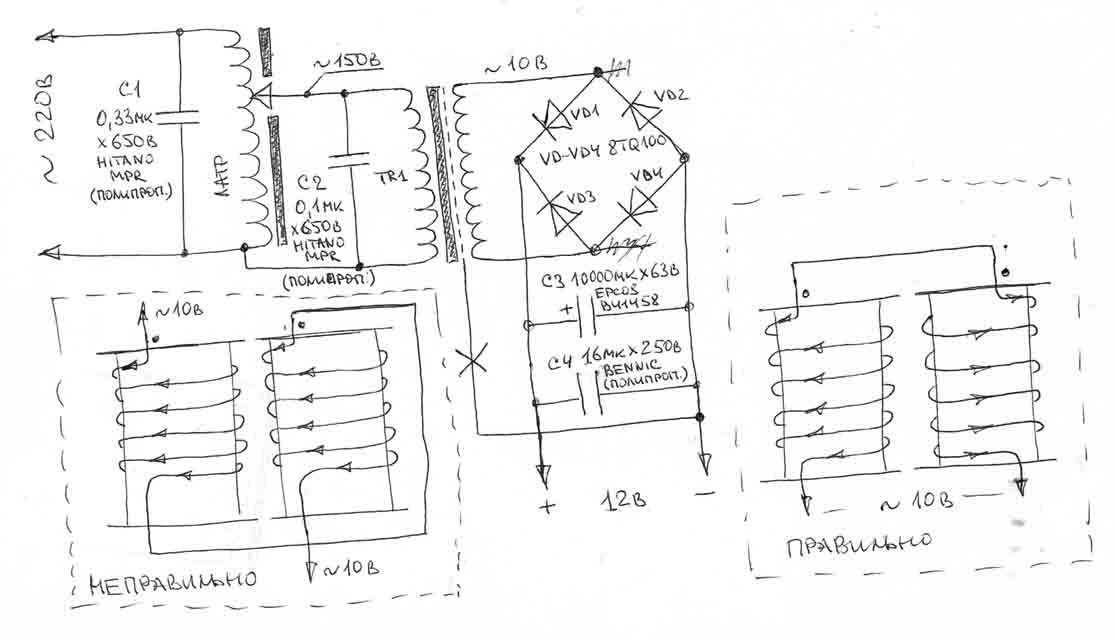 ~220В
C1
0,33мк
х650В
HITANO
MPR
(полипроп.)
ЛАТР
~150В
C2
0,1мк
х650В
HITANO
MPR
(полипроп.)
TR1
~10В
VD1
VD2
VD-VD4 8TQ100
VD3
VD4
C3 10000мк х 63В
EPCOS
B41458
+
C4 16мк х 250В
BENNIC
(полипроп.)
+ 12В −
~10В
~10В
НЕПРАВИЛЬНО
~10В
ПРАВИЛЬНО